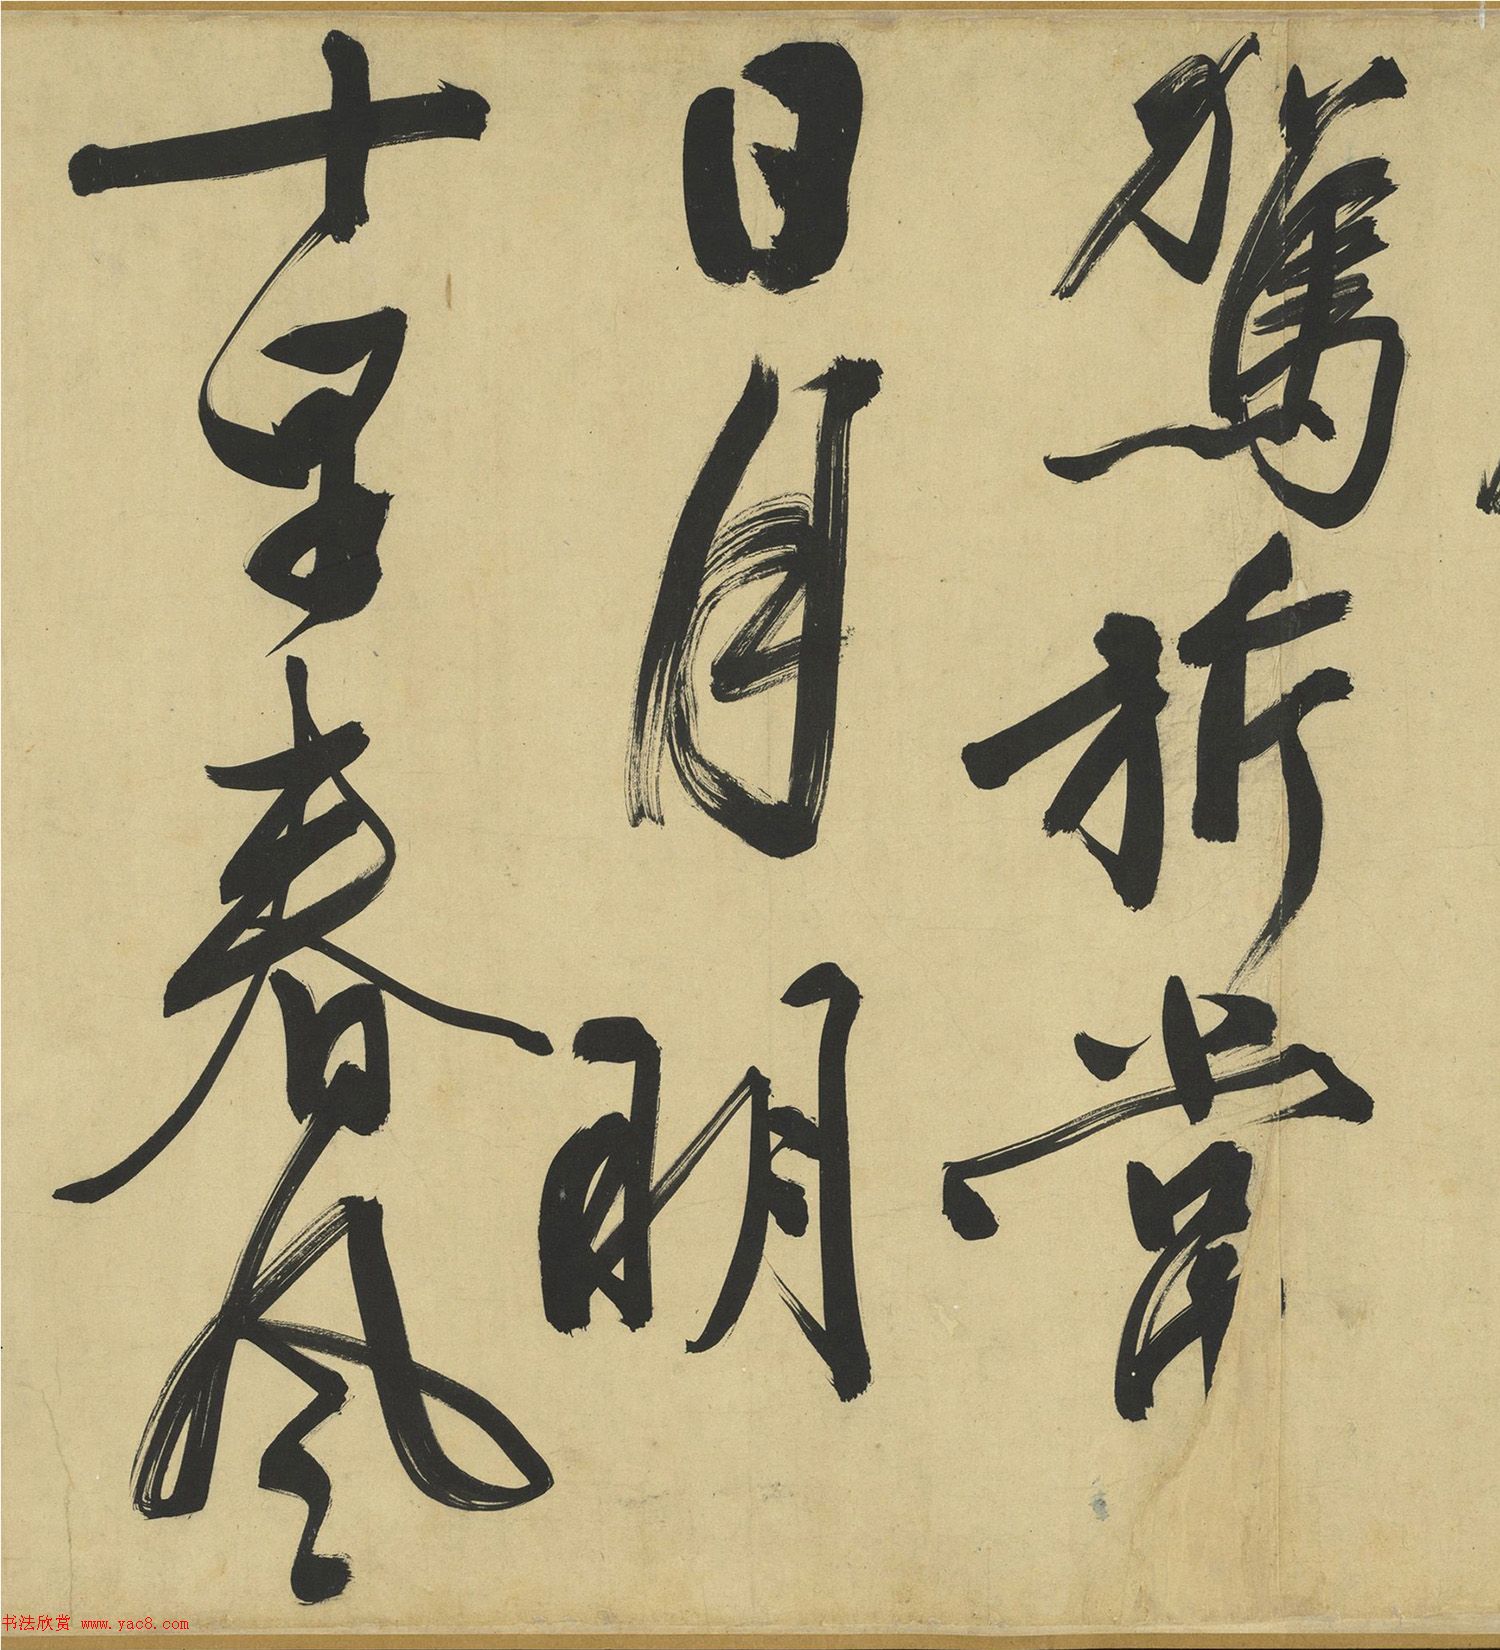 駕旂常
日月明
十里春風
书法欣赏 www.yac8.com